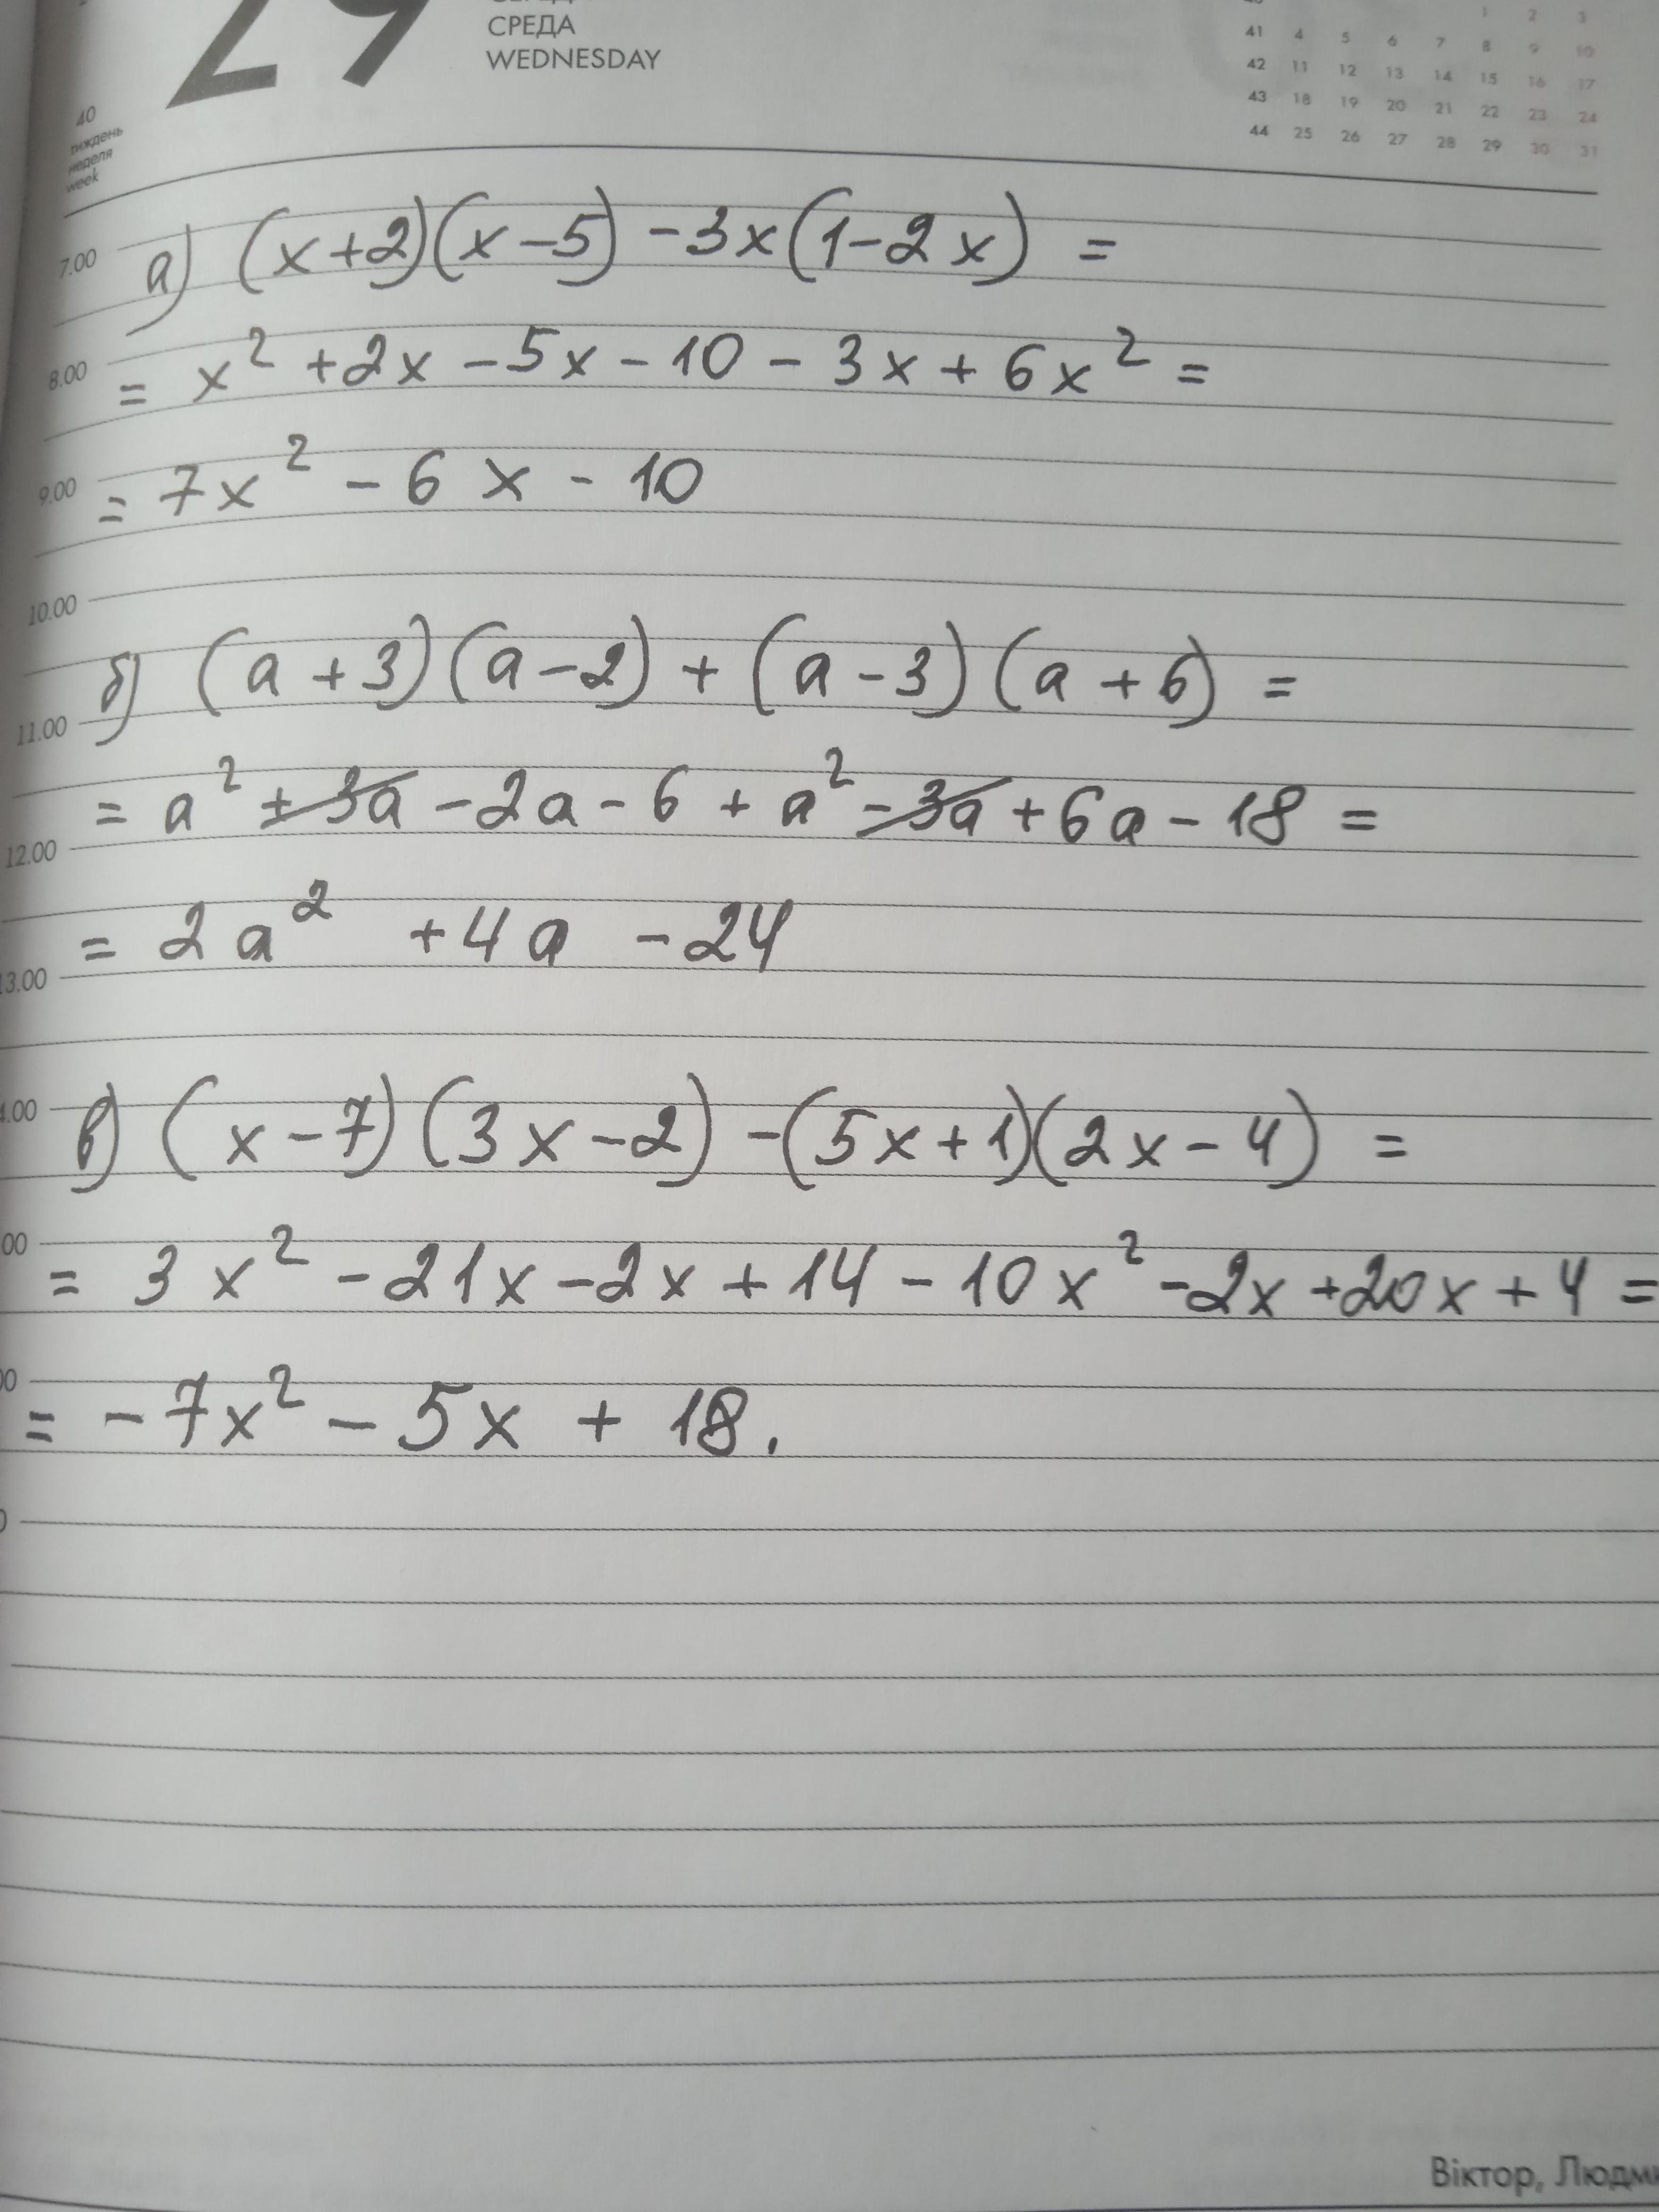 29
СРЕДА
WEDNESDAY
1 2 3
41 4 5 6 7 8 9 10
42 11 12 13 14 15 16 17
43 18 19 20 21 22 23 24
44 25 26 27 28 29 30 31
40
тиждень
неделя
week
7.00
а) (x+2)(x-5) -3x(1-2x) =
8.00
= x² +2x -5x -10 - 3x + 6x² =
9.00
= 7x² - 6x - 10
10.00
б) (a+3)(a-2) + (a-3)(a+6) =
11.00
= a² + 3a - 2a - 6 + a² - 3a + 6a - 18 =
12.00
= 2a² +4a -24
13.00
в) (x-7)(3x-2) -(5x+1)(2x-4) =
= 3x² -21x -2x +14 - 10x² -2x +20x + 4 =
= -7x² - 5x + 18.
Віктор,